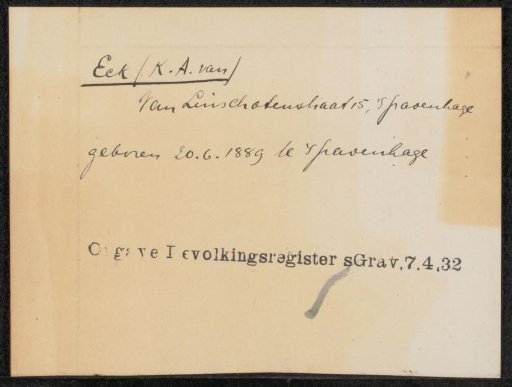 Eck (K. A. van)
Van Linschotenstraat 15, 's Gravenhage
geboren 20.6.1889 te 's Gravenhage
Opgave Bevolkingsregister sGrav.7.4.32